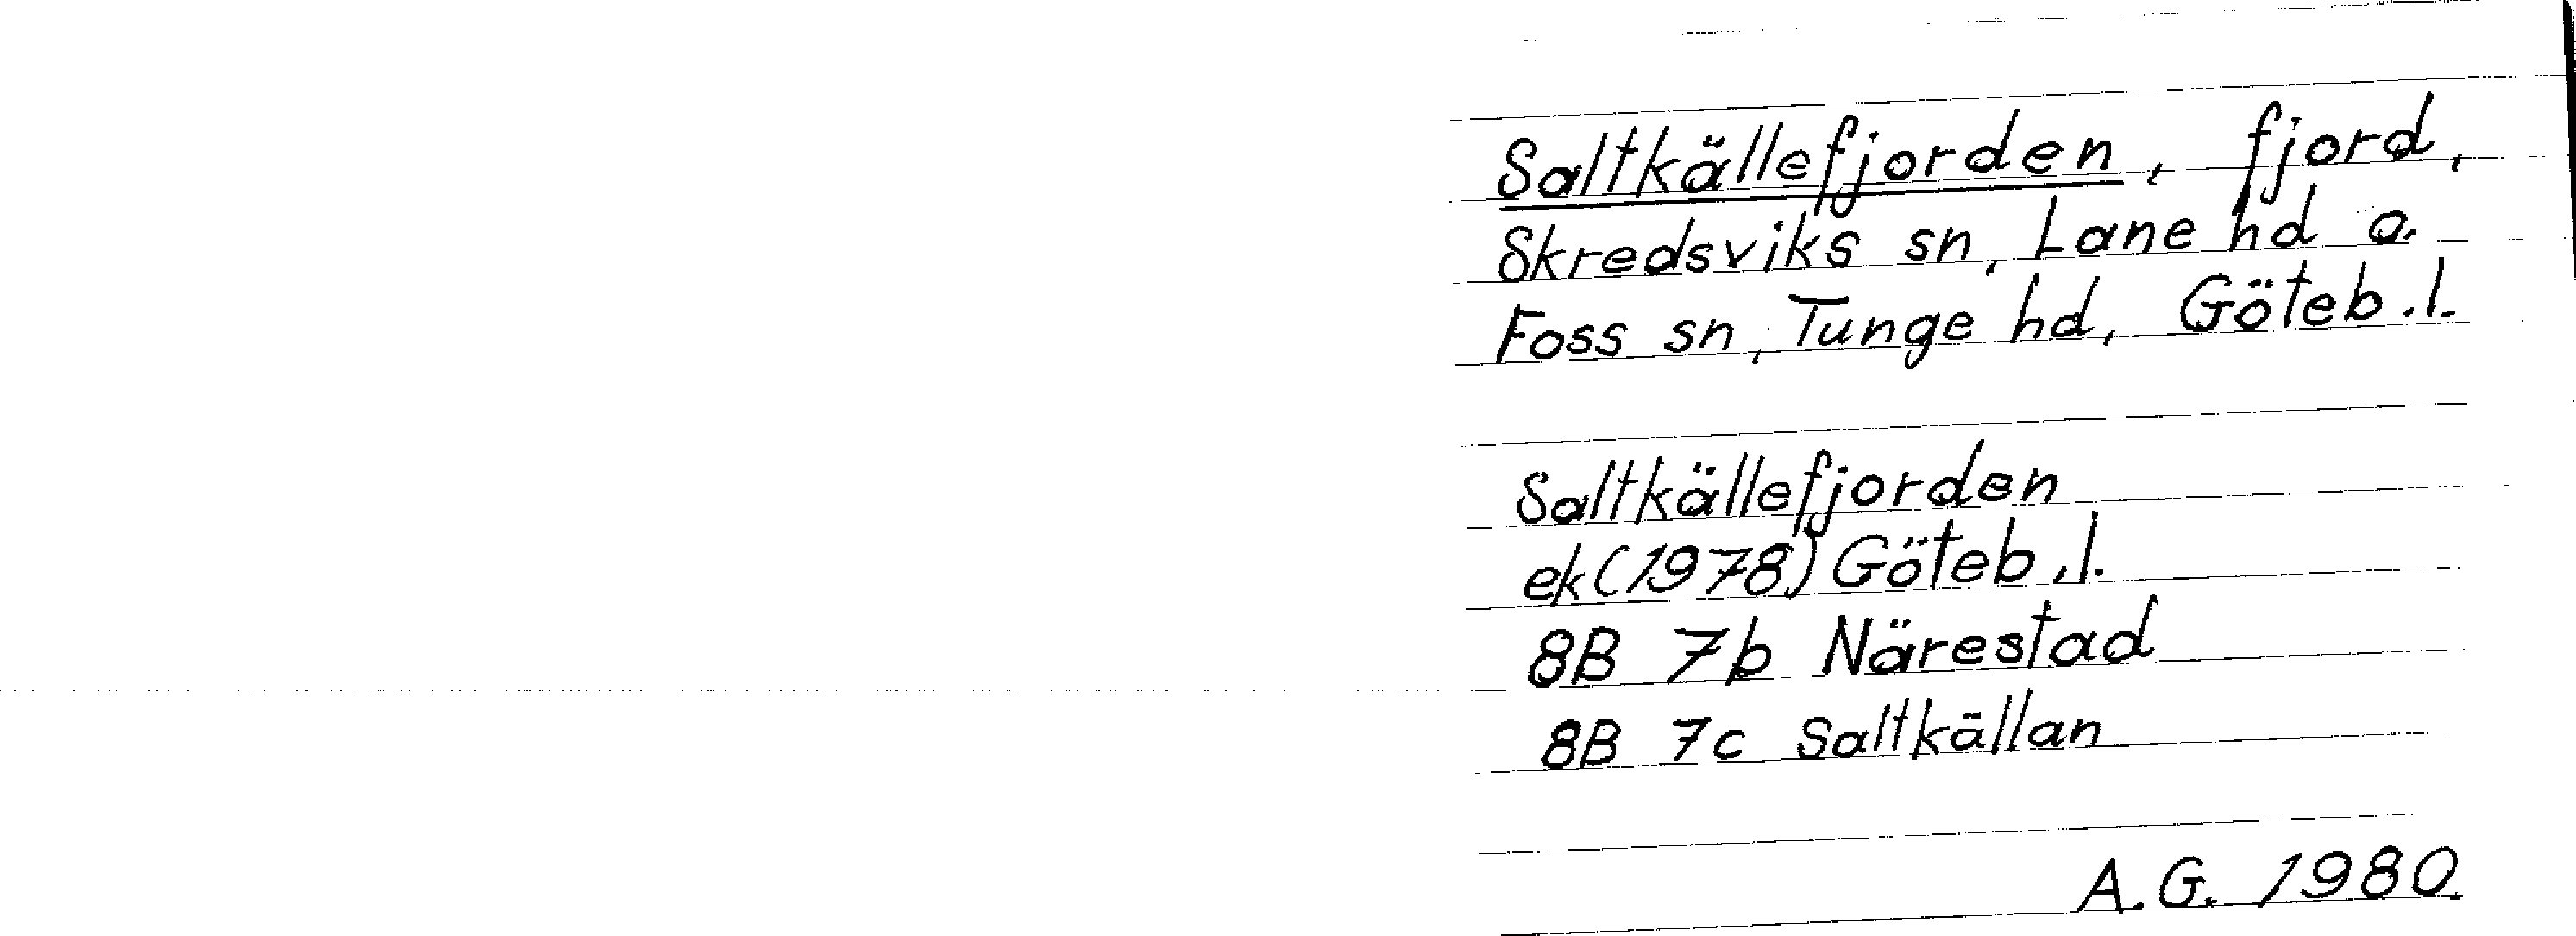 Saltkällefjorden, fjord,
Skredsviks sn, Lane hd o.
Foss sn, Tunge hd, Göteb.l.
Saltkällefjorden
ek(1978) Göteb.l.
8B 7b Närestad
8B 7c Saltkällan
A.G. 1980.